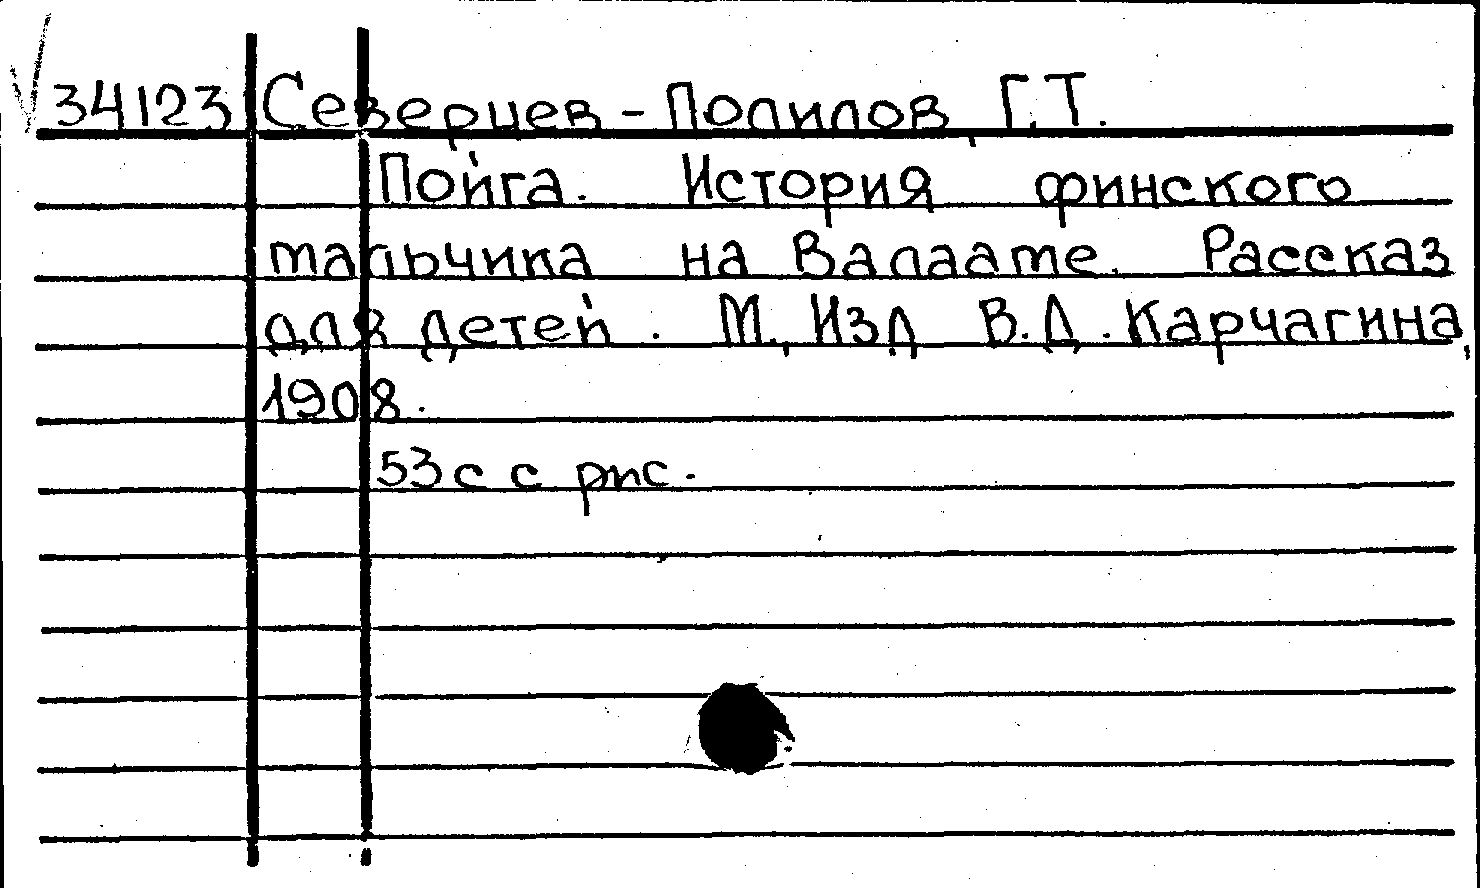 34123 Северцев - Полилов, Г.Т.
Пойга. История финского
мальчика на Валааме. Рассказ
для детей. М., Изд. В.Д. Карчагина,
1908.
53 с с рис.